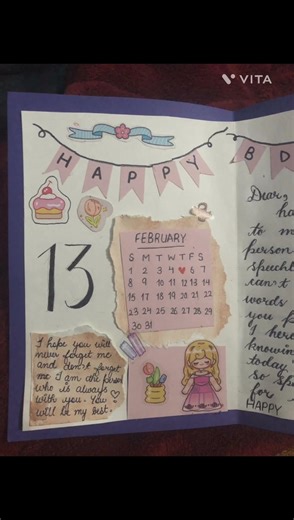 VITA
HAPPY BD
13
FEBRUARY
S M T W T F S
1 2 3 4 ♥ 6 7
8 9 10 11 12 13 14
15 17 18 19 20 21 22
23 24 25 26 27 28 29
30 31
I hope you will
never forget me
and don't forget
me I am the person
who is always
with you. You ♡
will be my best.
Dear,
ha
to m
person
speechl
can't
words
you p
I here
knowin
today.
so spe
for
HAPPY